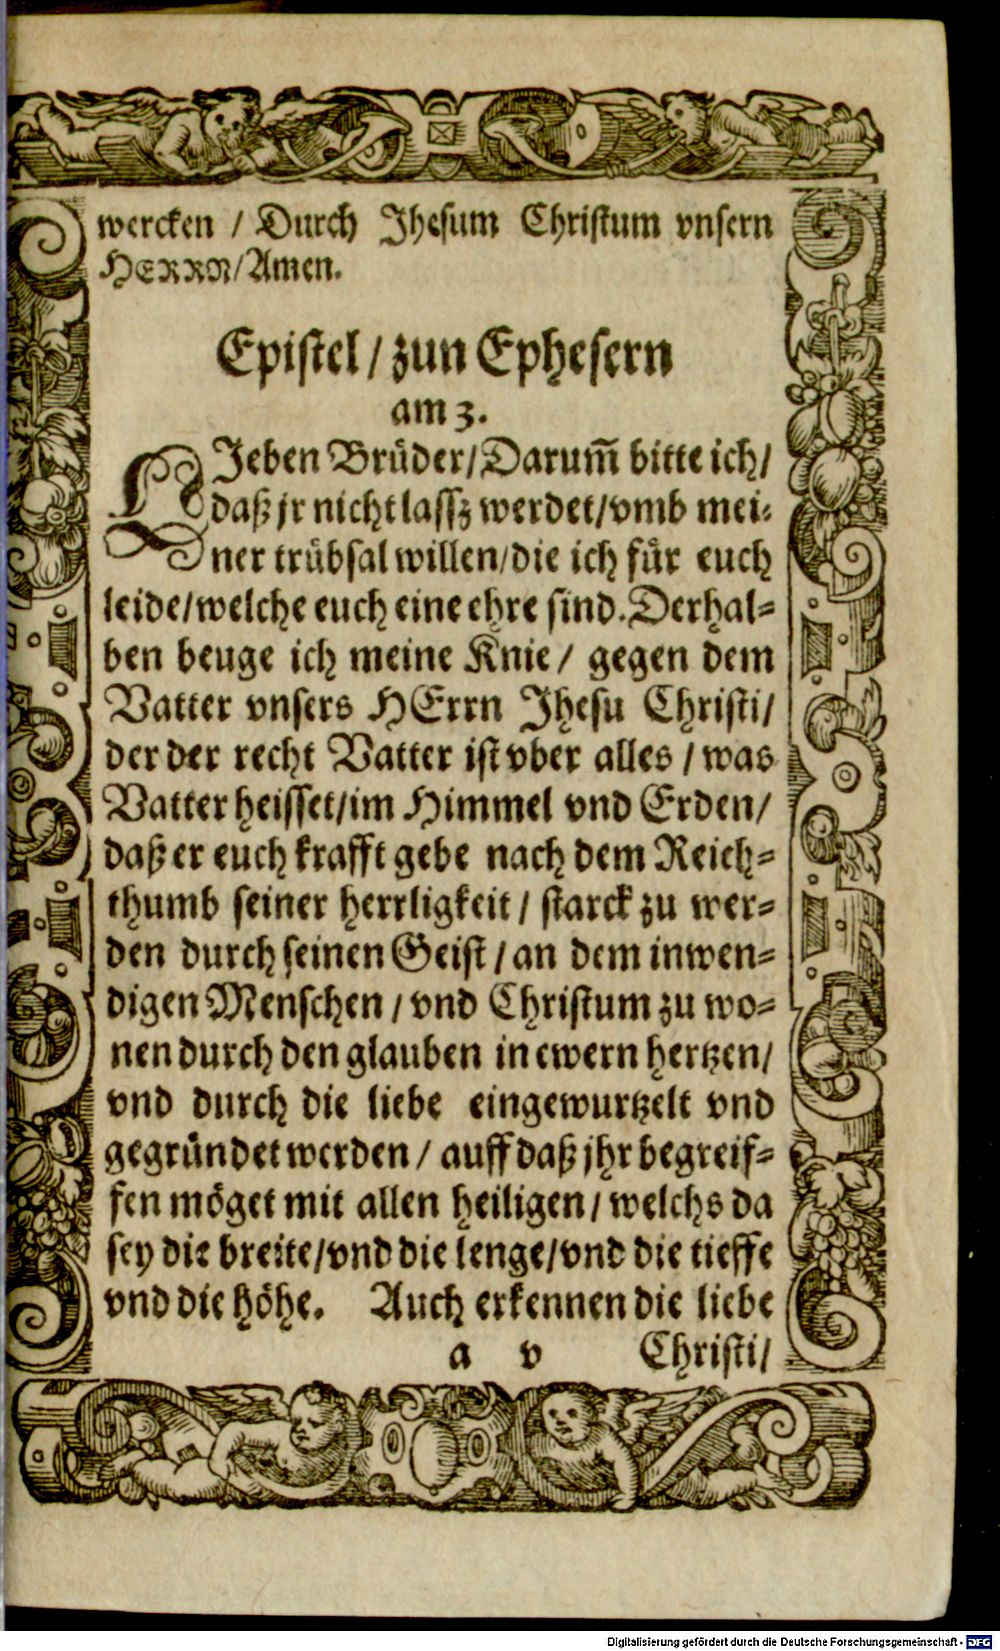 wercken / Durch Jhesum Christum vnsern
HERRN/Amen.
Epistel / zun Ephesern
am 3.
LJeben Brüder/Darum̃ bitte ich/
daß jr nicht lassz werdet/vmb mei-
ner trübsal willen/die ich für euch
leide/welche euch eine ehre sind.Derhal-
ben beuge ich meine Knie/ gegen dem
Vatter vnsers HErrn Jhesu Christi/
der der recht Vatter ist vber alles / was
Vatter heisset/im Himmel vnd Erden/
daß er euch krafft gebe nach dem Reich-
thumb seiner herrligkeit / starck zu wer-
den durch seinen Geist / an dem inwen-
digen Menschen / vnd Christum zu wo-
nen durch den glauben in ewern hertzen/
vnd durch die liebe eingewurtzelt vnd
gegründet werden / auff daß jhr begreif-
fen möget mit allen heiligen / welchs da
sey die breite/vnd die lenge/vnd die tieffe
vnd die höhe. Auch erkennen die liebe
a v Christi/
Digitalisierung gefördert durch die Deutsche Forschungsgemeinschaft - DFG